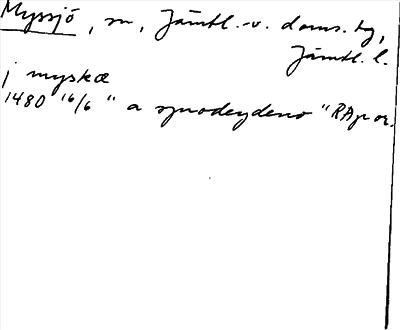 Myssjö, sn, Jämtl.-v. doms. tg,
Jämtl. l.
j myskæ
1480 16/6 " a synodeydeno " RAp or.